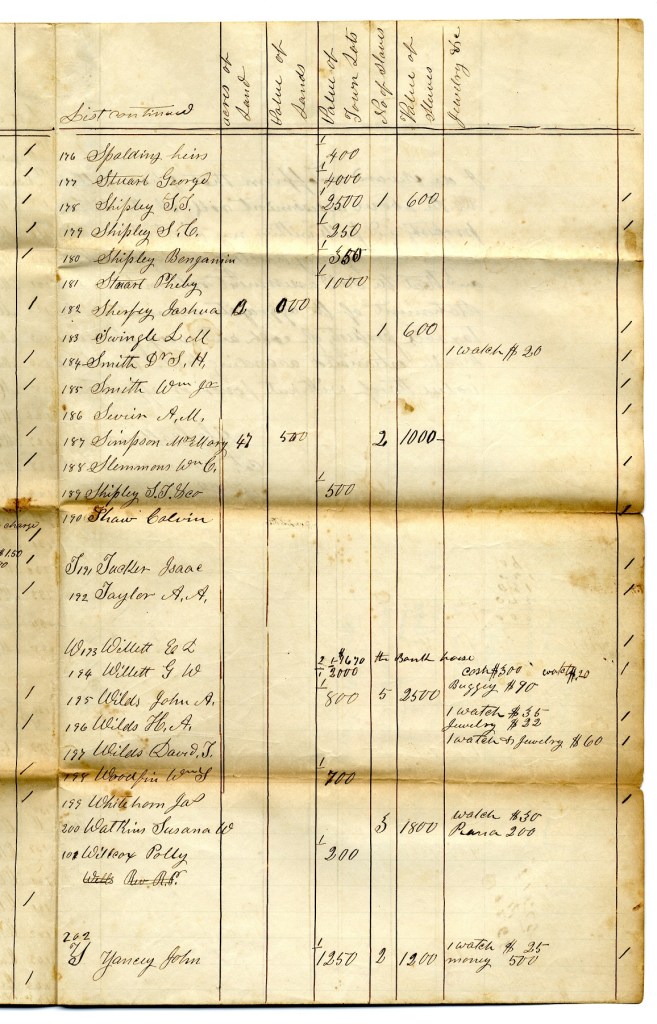 List continued acres of Land Value of Lands Value of Town Lots No of Slaves Value of Slaves Jewelry &c
176 Spalding heirs 1 400
177 Stuart George 1 4000
178 Shipley S. T. 1 2500 1 600 1
179 Shipley S. C. 1 250 1
180 Shipley Bengamin 1 350
181 Stuart Pheby 1 1000
182 Sherfey Joshua 000
183 Swingle L M 1 600 1
184 Smith Dr S. H. 1 watch $20 1
185 Smith Wm Jr 1
186 Sevier A. M. 1
187 Simpson Mary 47 500 2 1000
188 Slemmons Wm C. 1
189 Shipley S. T. & co 1 500
190 Shaw Calvin
charge
$1.50
T 191 Tucker Isaac 1
192 Taylor A. A. 1
W 193 Willett E L 2 1 $1670 the Bank house
194 Willett G W 1 2000 cash $300 watch $20 1
195 Wilds John A. 1 800 5 2500 Buggey $90 1
1 watch $35
196 Wilds H. A. Jewelry $22 1
197 Wilds David T. 1 watch & Jewelry $60 1
198 Woodfin Wm S 1 700
199 Whitehorn Jas 1
200 Watkins Susana W 3 1800 watch $30
Piana 200
101 Wilcox Polly 1 200
Wells Rev R. P.
202
Y Yancey John 1 1250 2 1200 1 watch $25 1
money 500